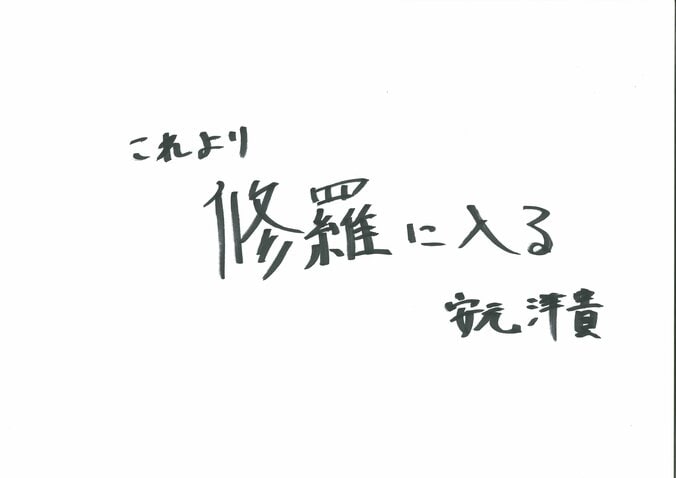 これより
修羅に入る
安元洋貴